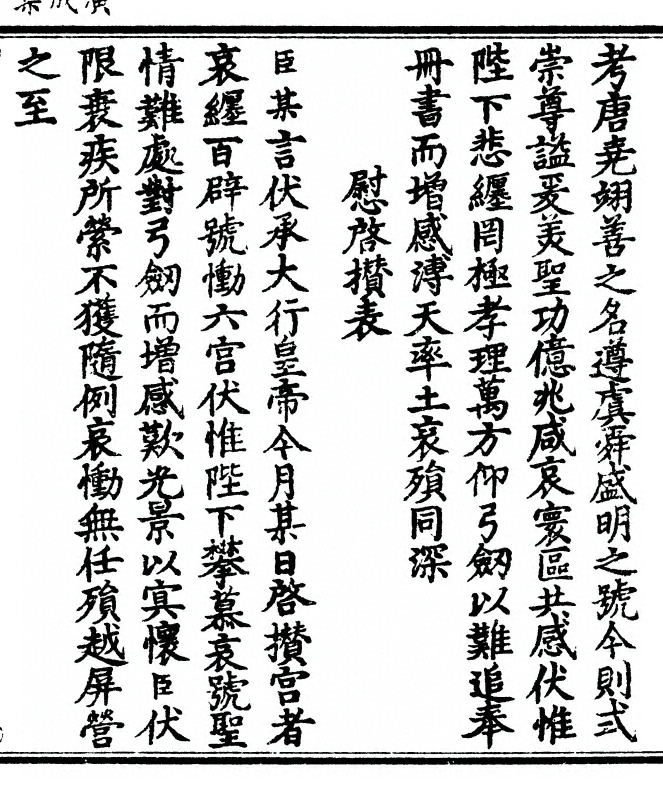 考唐堯翊善之名遵虞舜盛明之號今則式
崇尊謚爰羙聖功億兆咸哀寰區共感伏惟
陛下悲纏罔極孝理萬方仰弓劔以難追奉
冊書而増感溥天率土哀殞同深
慰啓攢表
臣某言伏承大行皇帝今月某日啓攢宫者
哀纏百辟號慟六宫伏惟陛下攀慕哀號聖
情難處對弓劔而増感歎光景以寘懷臣伏
限衰疾所縈不獲隨例哀慟無任殞越屏營
之至